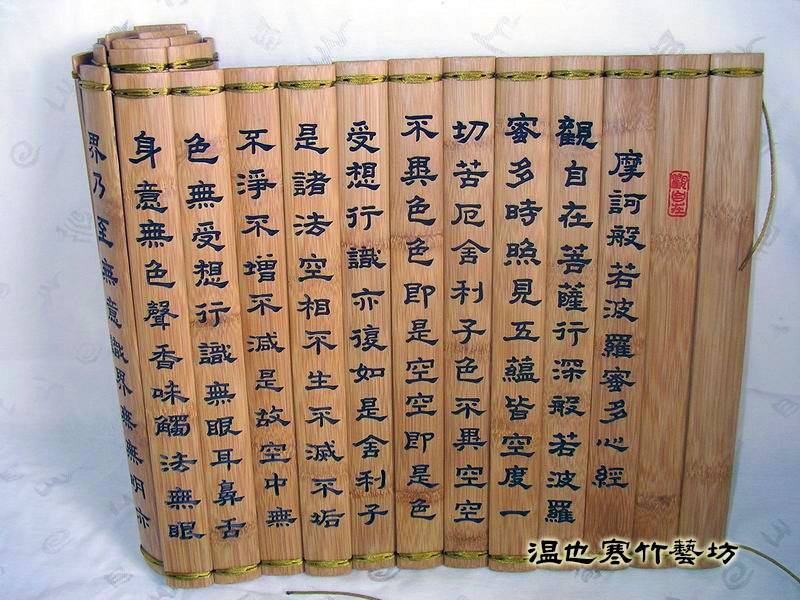 觀自在
摩訶般若波羅蜜多心經
觀自在菩薩行深般若波羅
蜜多時照見五蘊皆空度一
切苦厄舍利子色不異空空
不異色色即是空空即是色
受想行識亦復如是舍利子
是諸法空相不生不滅不垢
不淨不增不減是故空中無
色無受想行識無眼耳鼻舌
身意無色聲香味觸法無眼
界乃至無意識界無無明亦
温也寒竹藝坊